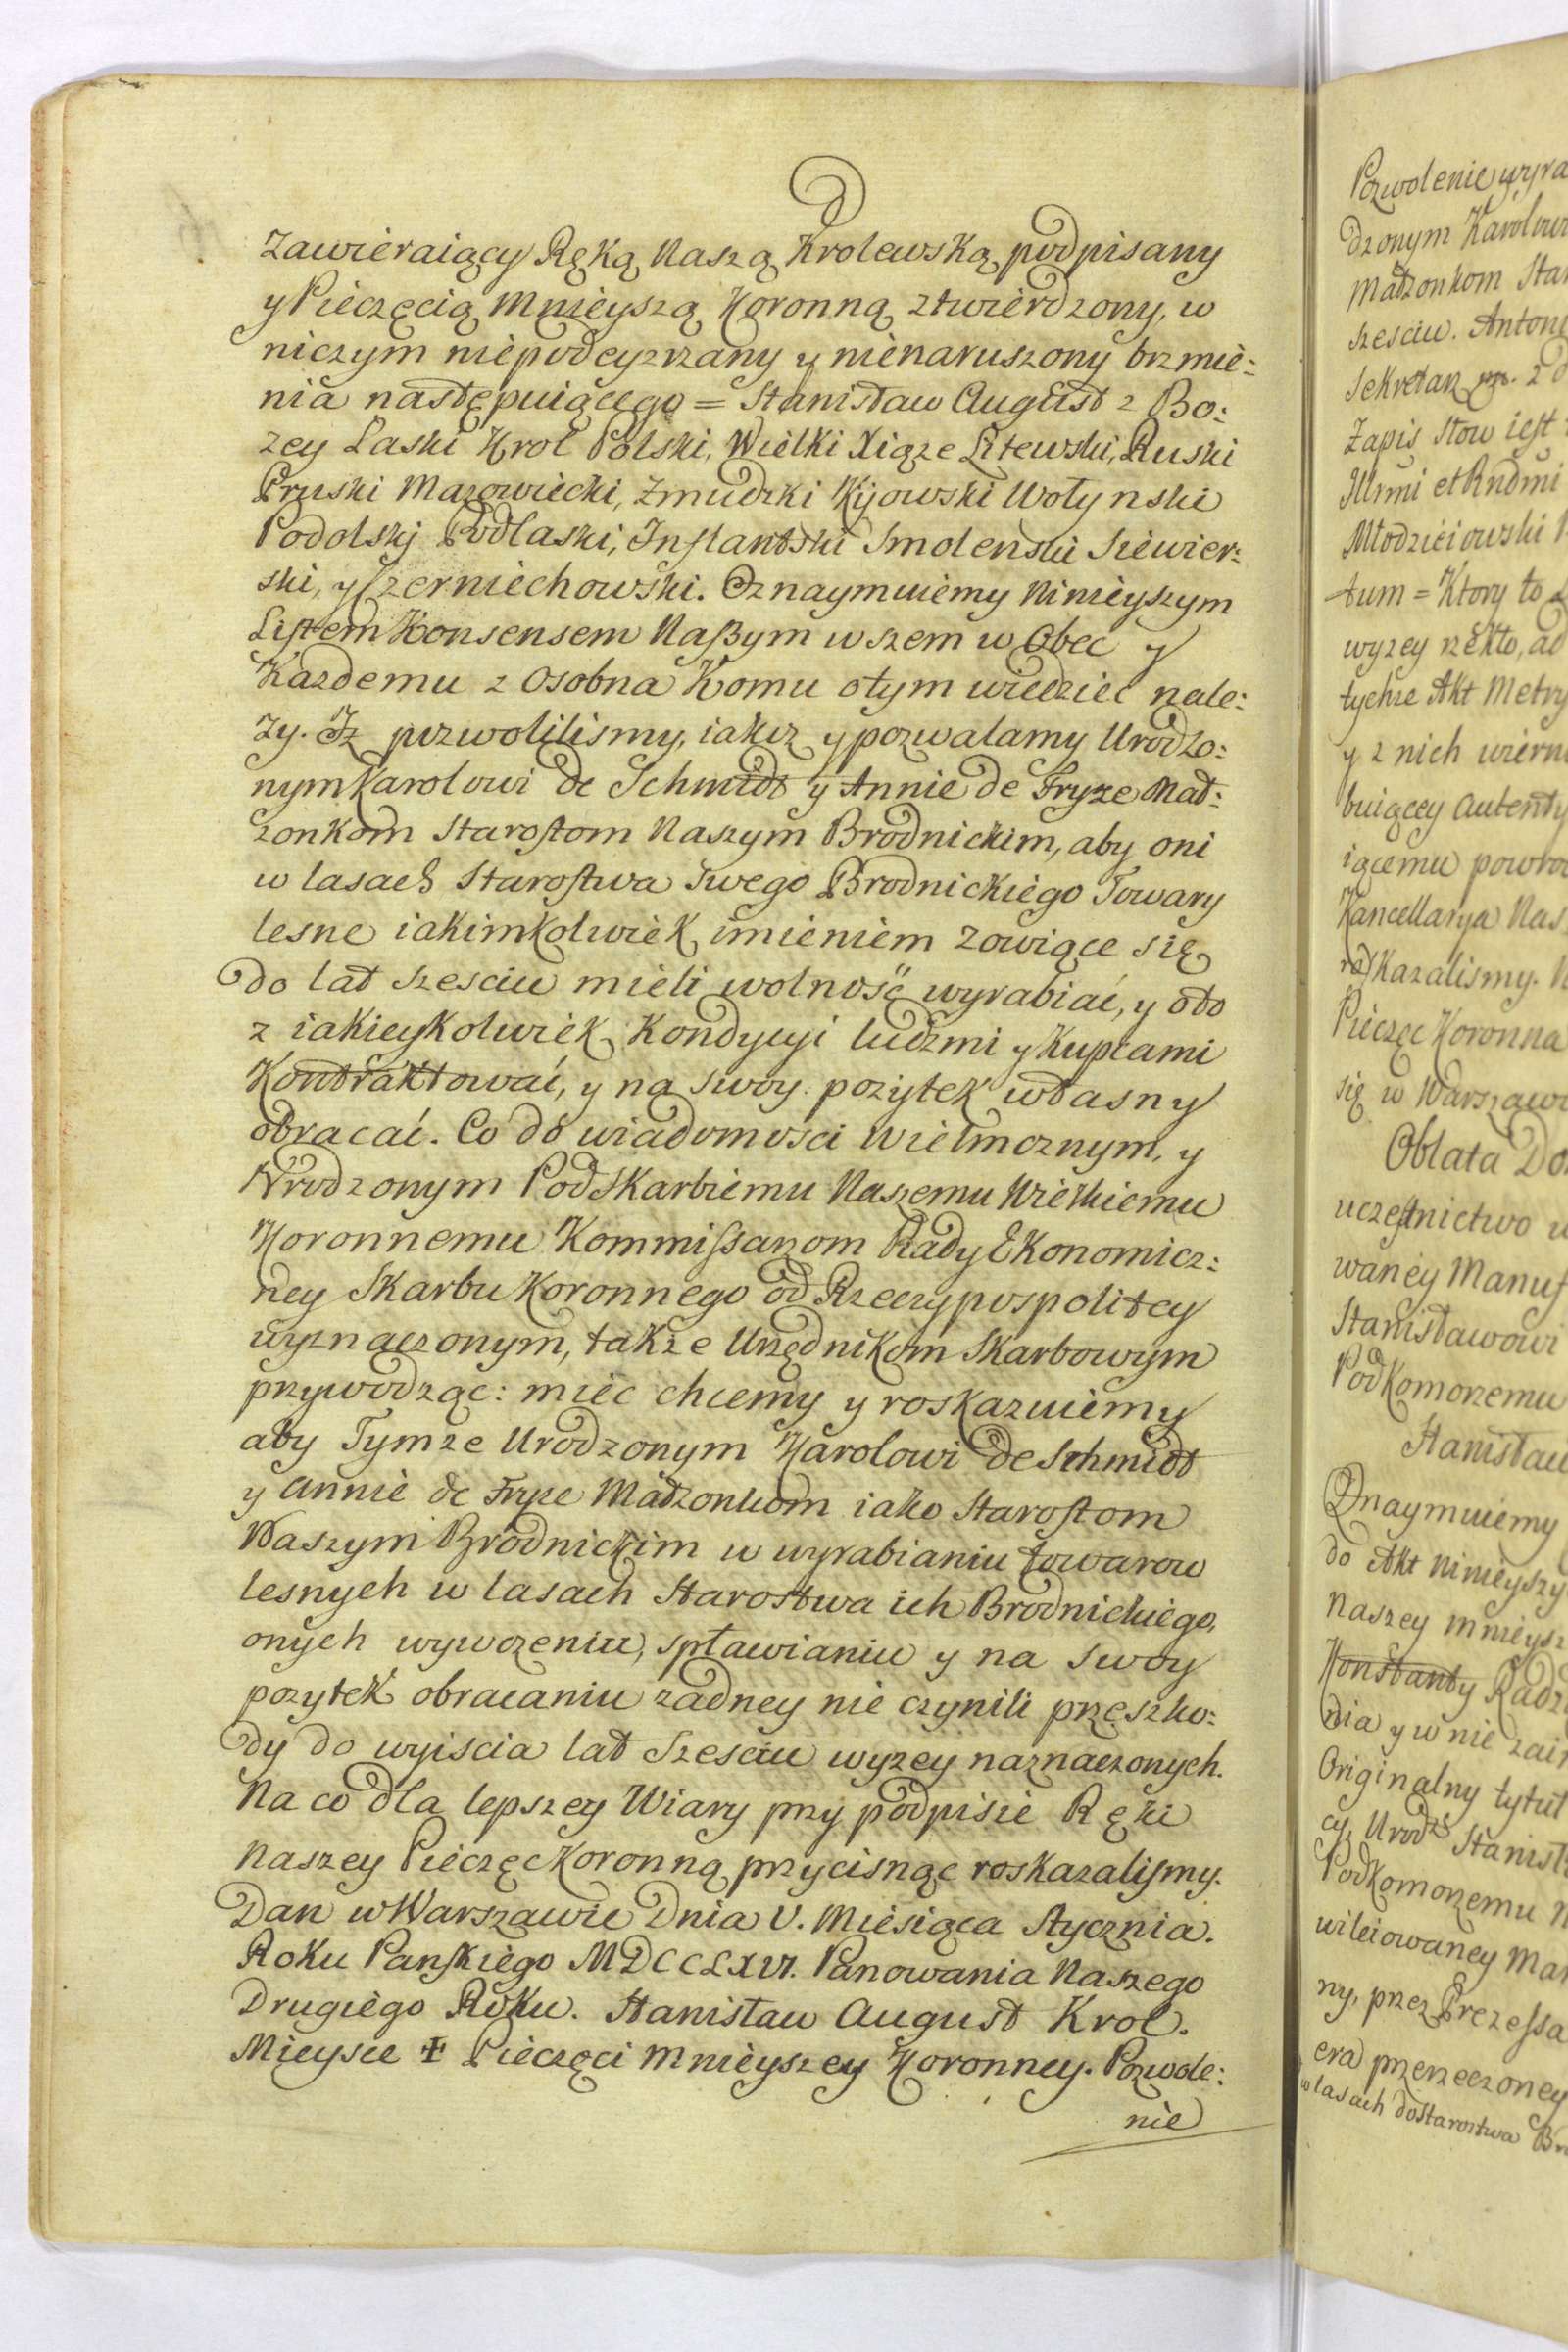 Zawieraiący Ręką Naszą Krolewską podpisany
y Pieczęcią Mnieyszą Koronną ztwierdzony, w
niczym niepodeyzrzany y nienaruszony brzmie:
nia następuiącego = Stanisław August z Bo:
zey Laski Krol Polski, Wielki Xiąze Litewski, Ruski
Pruski Mazowiecki, Zmudzki Kijowski Wołynski
Podolskj Podlaski, Inflantski Smolenski Siewier:
ski, y Czerniechowski. Oznaymuiemy Ninieyszym
Listem Konsensem Naszym wszem w Obec y
Kazdemu z Osobna Komu otym wiedziec nale:
zy. Iz pozwolilismy, iakoz y pozwalamy Urodzo:
nym Karolowi de Schmidt y Annie de Fryze Mał:
zonkom Starostom Naszym Brodnickim, aby oni
w lasach Starostwa Swego Brodnickiego Towary
lesne iakimkolwiek imieniem zowiące się
do lat szesciu mieli wolność wyrabiać, y oto
z iakieyskolwiek Kondycyi ludzmi y Kupcami
Kontraktować, y na swoy pozytek własny
obracać. Co do wiadomosci Wielmoznym, y
Urodzonym Podskarbiemu Naszemu Wielkiemu
Koronnemu Kommissarzom Rady Ekonomicz:
ney Skarbu Koronnego od Rzeczypospolitey
wyznaczonym, także Urzędnikom Skarbowym
przywodząc: miec chcemy y roskazuiemy
aby Tymze Urodzonym Karolowi de Schmidt
y Annie de Fryze Małzonkom iako Starostom
Naszym Brodnickim w wyrabianiu towarow
lesnych w lasach Starostwa ich Brodnickiego,
onych wywozeniu, spławianiu y na swoy
pozytek obracaniu zadney nie czynili przeszko:
dy do wyiscia lat Szesciu wyzey naznaczonych.
Na co dla lepszey Wiary przy podpisie Ręki
Naszey Pieczęc Koronną przycisnąc roskazalismy.
Dan w Warszawie Dnia V. Miesiąca Stycznia.
Roku Panskiego MDCCLXVI. Panowania Naszego
Drugiego Roku. Stanisław August Krol.
Mieysce ✝ Pieczęci Mnieyszey Koronney. Pozwole:
nie
Pozwolenie wyra
dzonym Karolowi
Małzonkom Star
szesciu. Antoni
Sekretarz
Zapis Słow iest
Illmi et Rndmi
Młodzieiowski
tum = Ktory to
wyzey rzekło, ad
tychze Akt Metry
y z nich wiern
buiącey autenty
iącemu powro
Kancellarya Nas
roskazalismy.
Pieczęc Koronna
się w Warszawi
Oblata Do
uczestnictwo w
waney Manuf
Stanisławowi
Podkomorzemu
Stanisław
Oznaymuiemy
do Akt Ninieyszy
Naszey mnieysz
Konstanty Radz
nia y w nie zai
Originalny tytuł
cy, Urodz Stanisł
Podkomorzemu N
wileiowaney Man
ny, przez Prezessa
era przerzeczoney
w lasach do Starostwa Bro